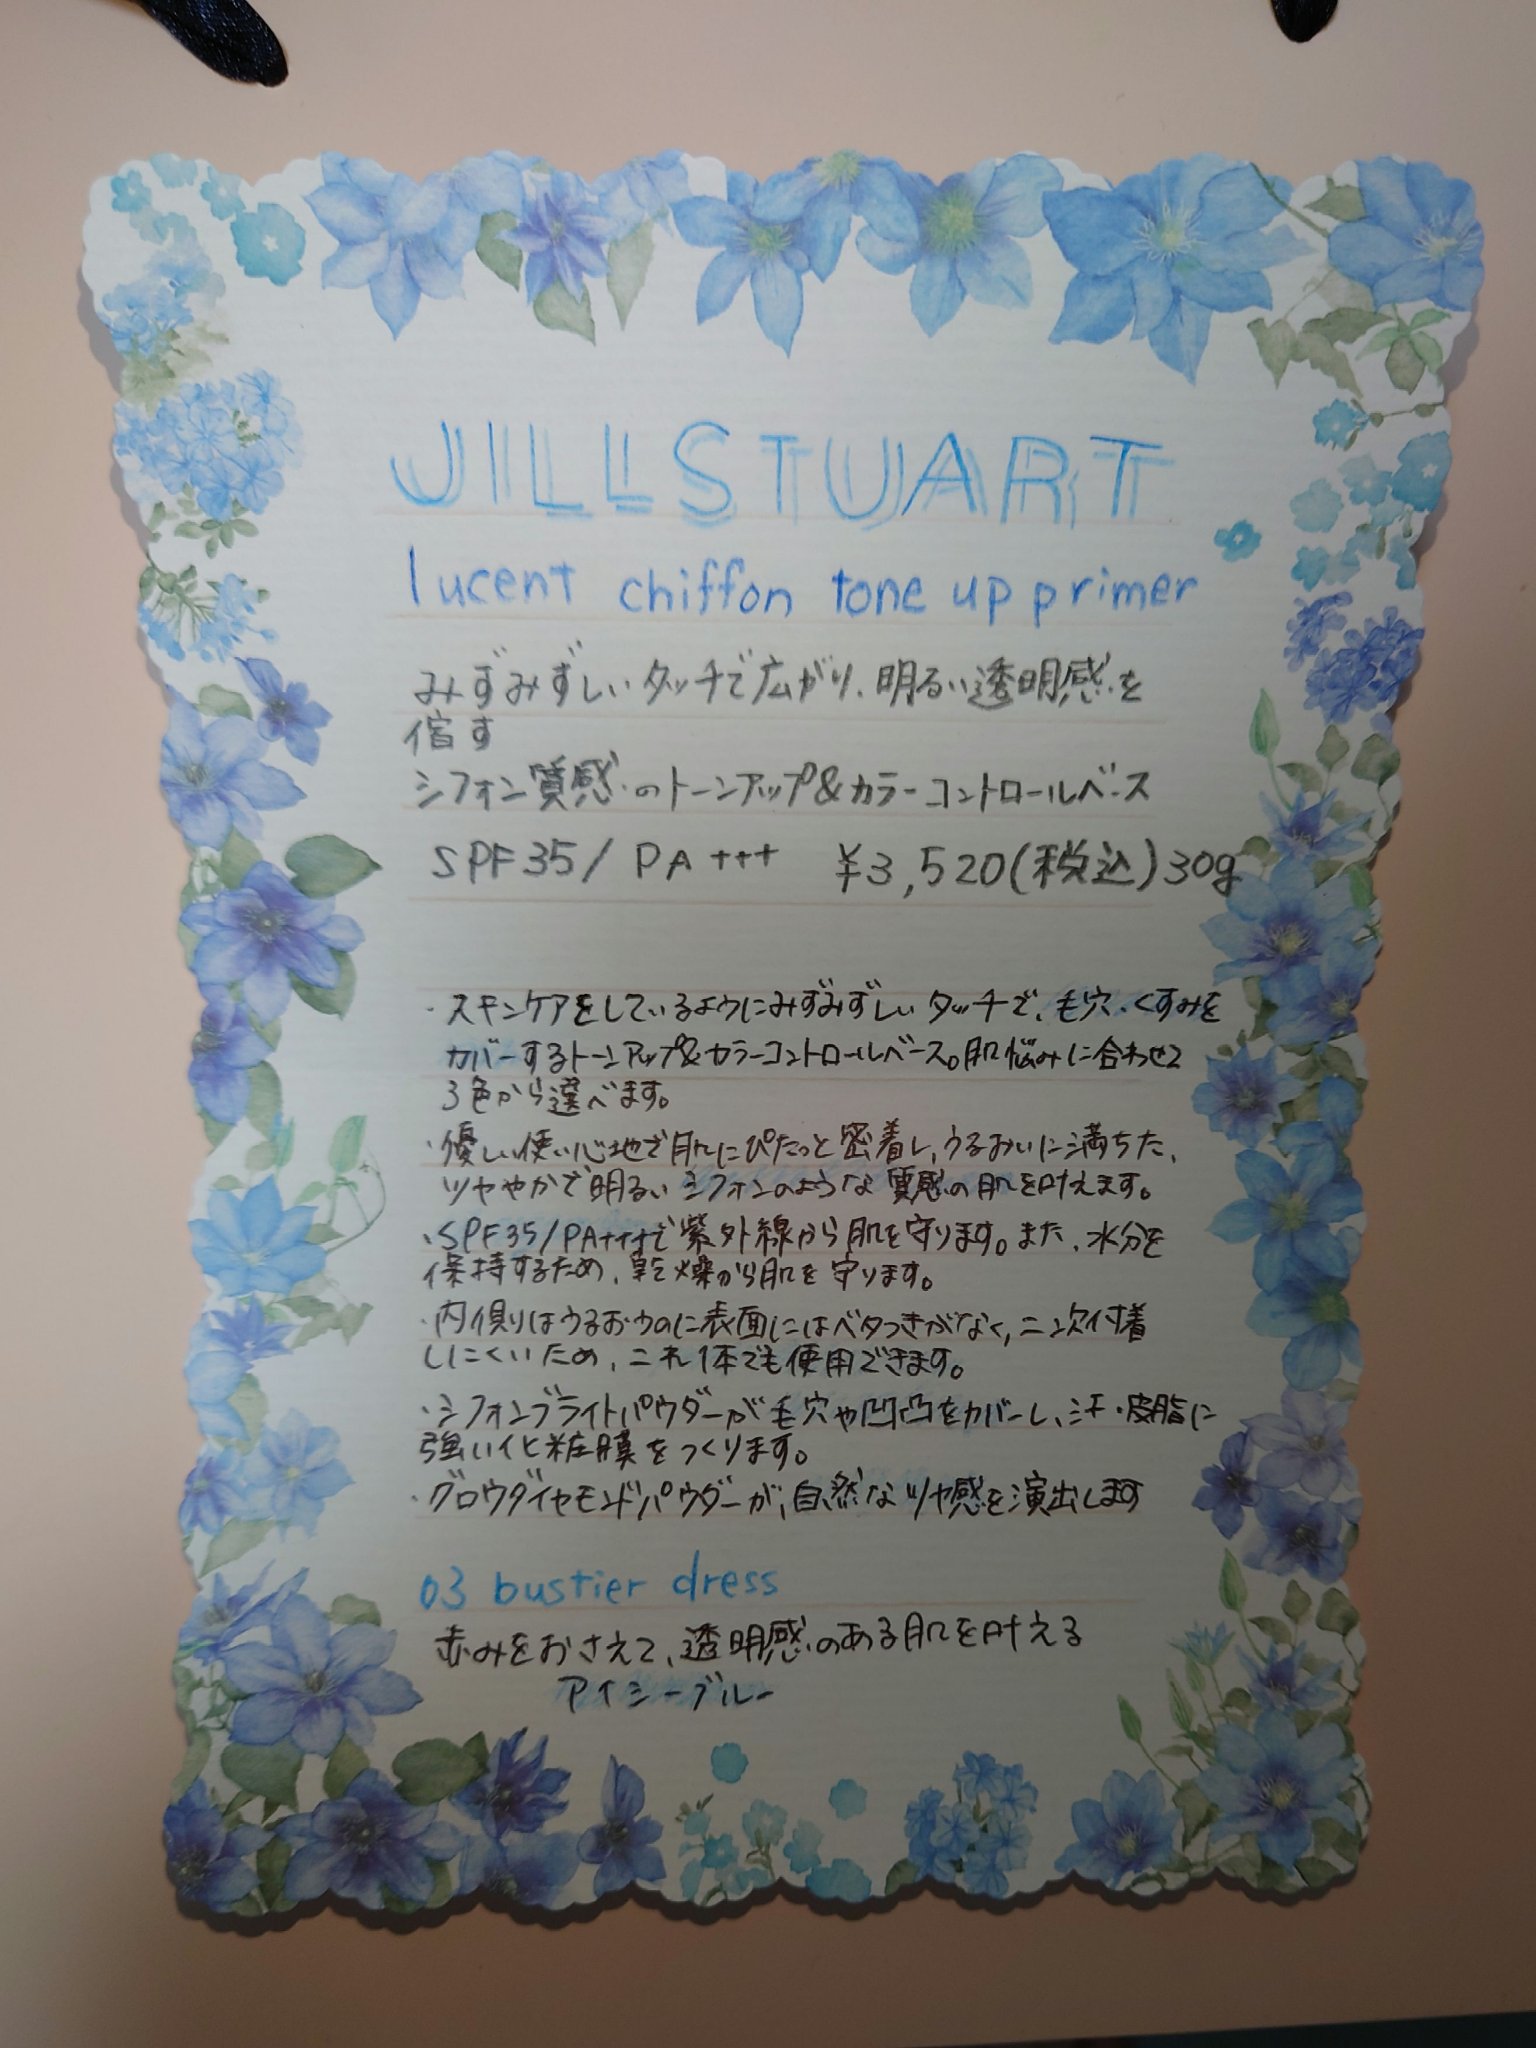 JILLSTUART
lucent chiffon tone up primer
みずみずしいタッチで広がり、明るい透明感を
宿す
シフォン質感のトーンアップ&カラーコントロールベース
SPF35/PA+++ ¥3,520(税込)30g
・スキンケアをしているようにみずみずしいタッチで、毛穴・くすみを
カバーするトーンアップ&カラーコントロールベース。肌悩みに合わせて
3色から選べます。
・優しい使い心地で肌にぴたっと密着し、うるおいに満ちた、
ツヤやかで明るいシフォンのような質感の肌を叶えます。
・SPF35/PA+++で紫外線から肌を守ります。また、水分を
保持するため、乾燥から肌を守ります。
・内側はうるおうのに表面にはベタつきがなく、二次付着
しにくいため、これ1本でも使用できます。
・シフォンブライトパウダーが毛穴や凹凸をカバーし、汗・皮脂に
強い化粧膜をつくります。
・グロウダイヤモンドパウダーが、自然なツヤ感を演出します
03 bustier dress
赤みをおさえて、透明感のある肌を叶える
アイシーブルー